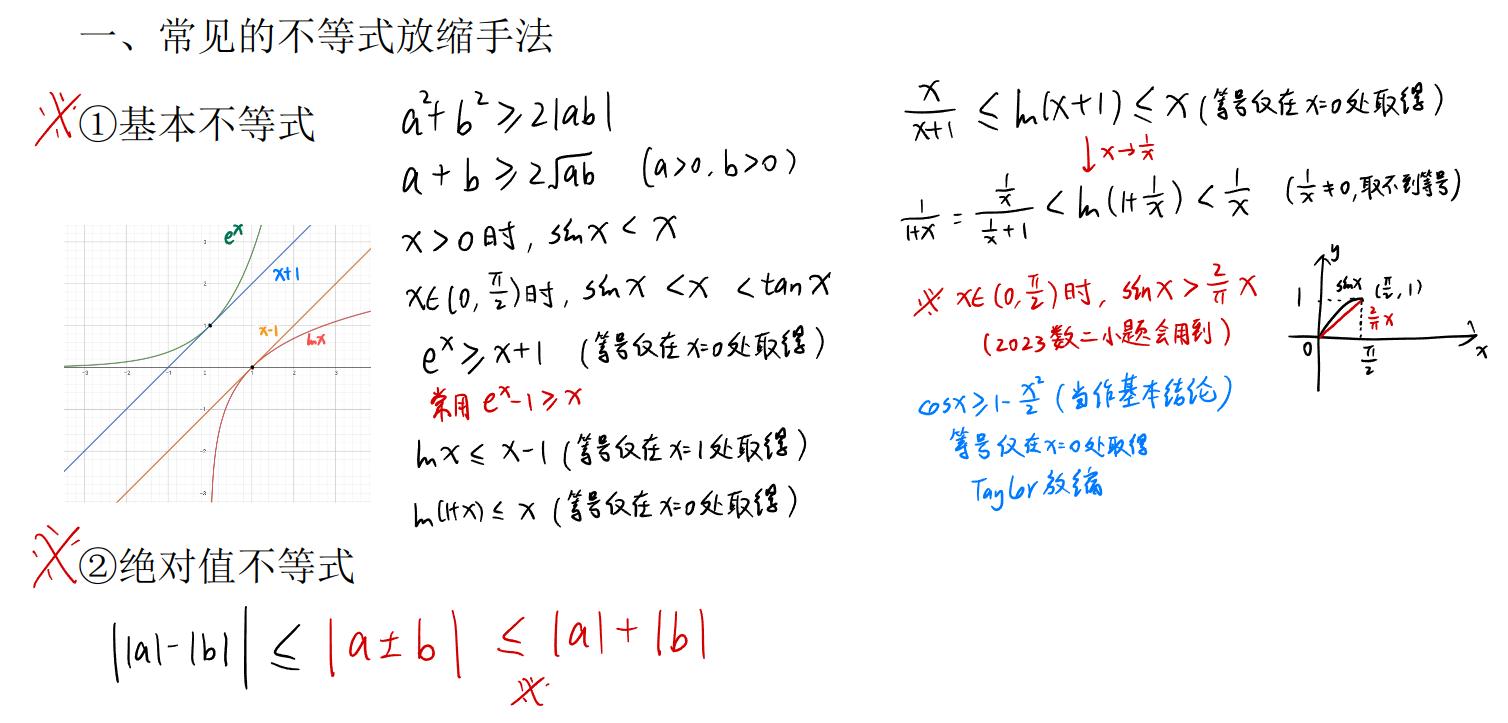 一、常见的不等式放缩手法
※①基本不等式
a²+b²≥2|ab|
a+b≥2√ab (a>0,b>0)
x>0时, sinx<x
x∈(0,π/2)时, sinx<x<tanx
e^x≥x+1 (等号仅在x=0处取得)
常用 e^x-1≥x
lnx≤x-1 (等号仅在x=1处取得)
ln(1+x)≤x (等号仅在x=0处取得)
e^x
x+1
x-1
lnx
-3 -2 -1 1 2 3
3
2
1
-1
-2
-3
x/(x+1)≤ln(x+1)≤x (等号仅在x=0处取得)
↓x→1/x
1/(1+x)=(1/x)/(1/x+1)<ln(1+1/x)<1/x (1/x≠0,取不到等号)
※ x∈(0,π/2)时, sinx>2/π x
(2023数二小题会用到)
y
sinx (π/2,1)
1
2/π x
0 π/2 x
cosx≥1-x²/2 (当作基本结论)
等号仅在x=0处取得
Taylor放缩
※②绝对值不等式
||a|-|b||≤|a±b|≤|a|+|b|
※